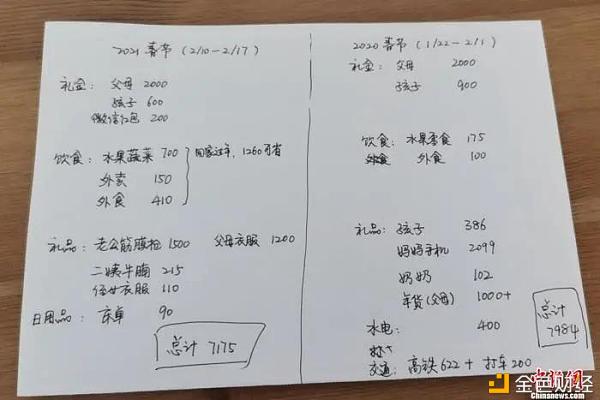 2021 春节 (2/10-2/17)
礼金: 父母 2000
孩子 600
微信红包 200
饮食: 水果蔬菜 700
外卖 150
外食 410
回家过年, 1260可省
礼品: 老公筋膜枪 1500 父母衣服 1200
二姨牛腩 215
侄女衣服 110
日用品: 床单 90
总计 7175
2020 春节 (1/22-2/1)
礼金: 父母 2000
孩子 900
饮食: 水果零食 175
外食 100
礼品: 孩子 386
妈妈手机 2099
奶奶 102
年货(父母) 1000+
水电: 400
交通: 高铁 622 + 打车 200
总计
7984
金色财经
Chinanews.com